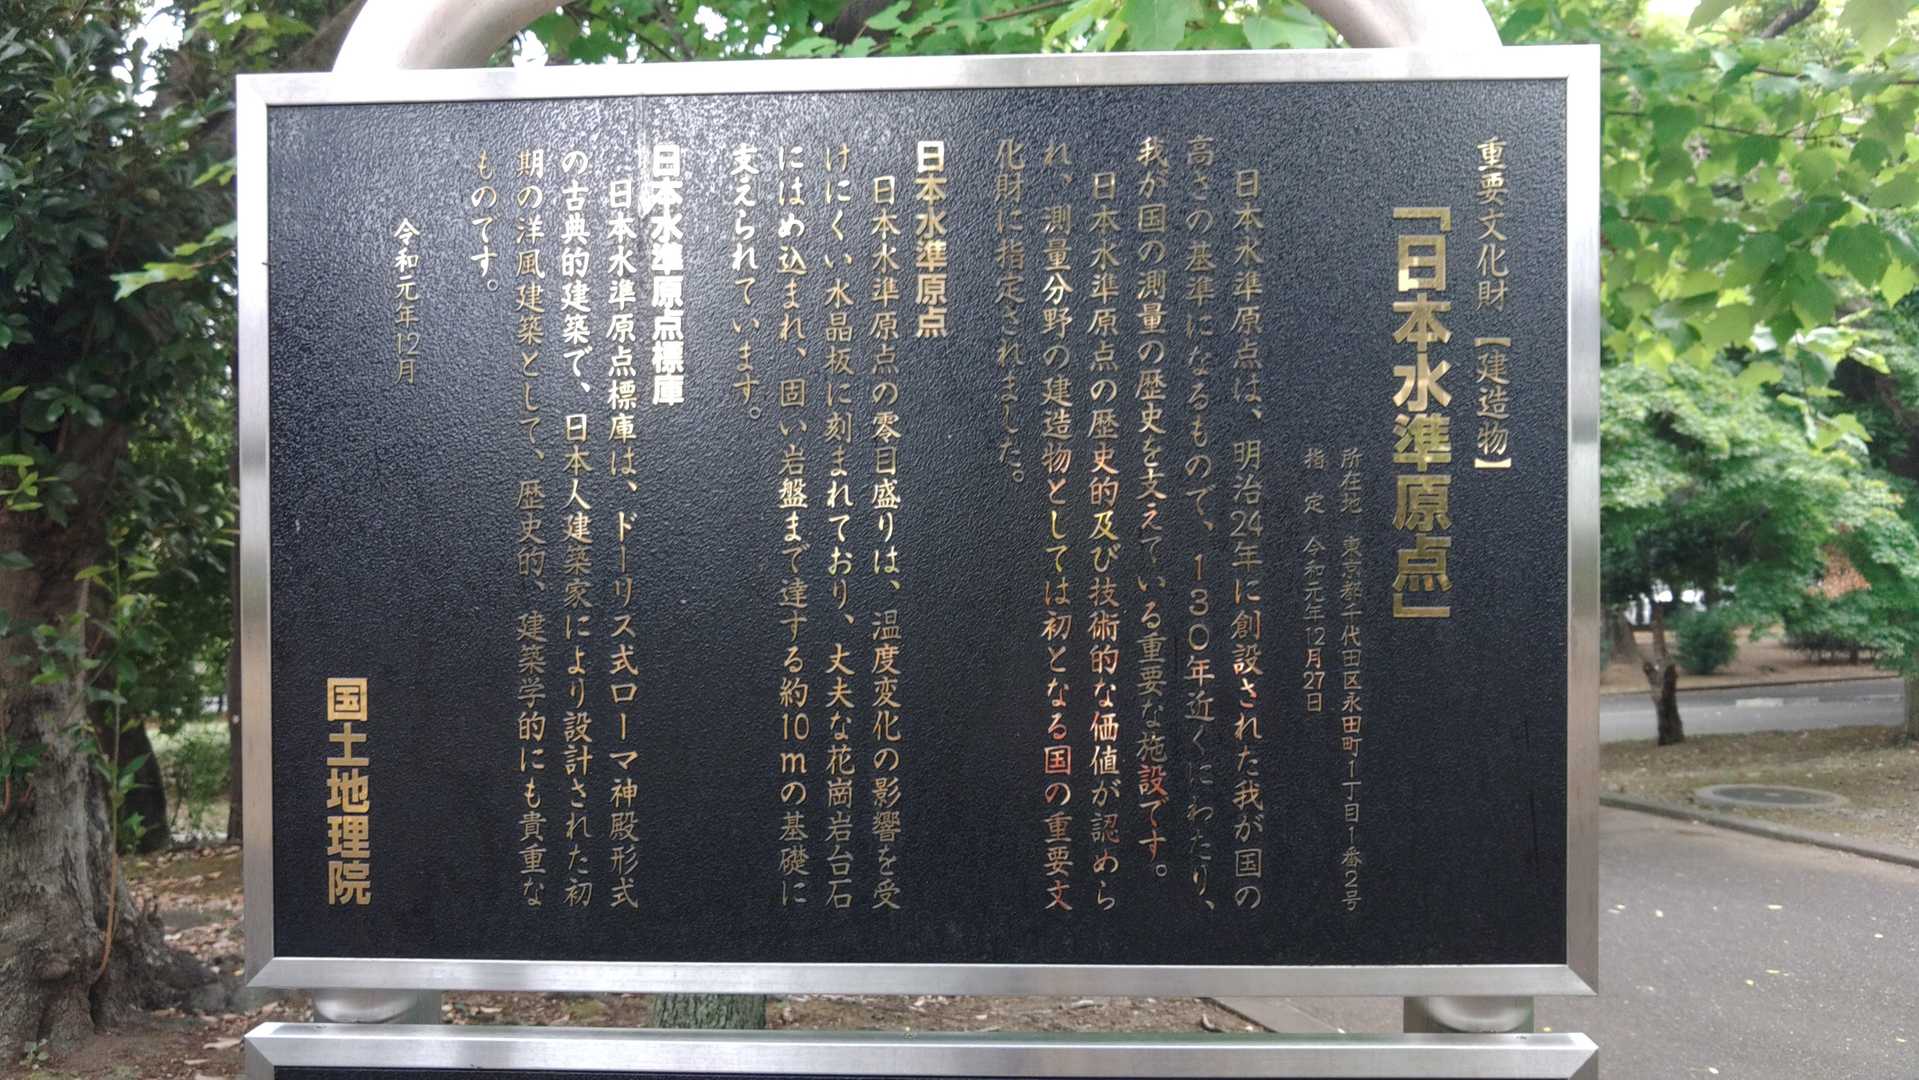 重要文化財【建造物】
「日本水準原点」
所在地 東京都千代田区永田町1丁目1番2号
指定 令和元年12月27日
日本水準原点は、明治24年に創設された我が国の
高さの基準になるもので、130年近くにわたり、
我が国の測量の歴史を支えている重要な施設です。
日本水準原点の歴史的及び技術的な価値が認めら
れ、測量分野の建造物としては初となる国の重要文
化財に指定されました。
日本水準原点
日本水準原点の零目盛りは、温度変化の影響を受
けにくい水晶板に刻まれており、丈夫な花崗岩台石
にはめ込まれ、固い岩盤まで達する約10mの基礎に
支えられています。
日本水準原点標庫
日本水準原点標庫は、ドーリス式ローマ神殿形式
の古典的建築で、日本人建築家により設計された初
期の洋風建築として、歴史的、建築学的にも貴重な
ものです。
令和元年12月
国土地理院